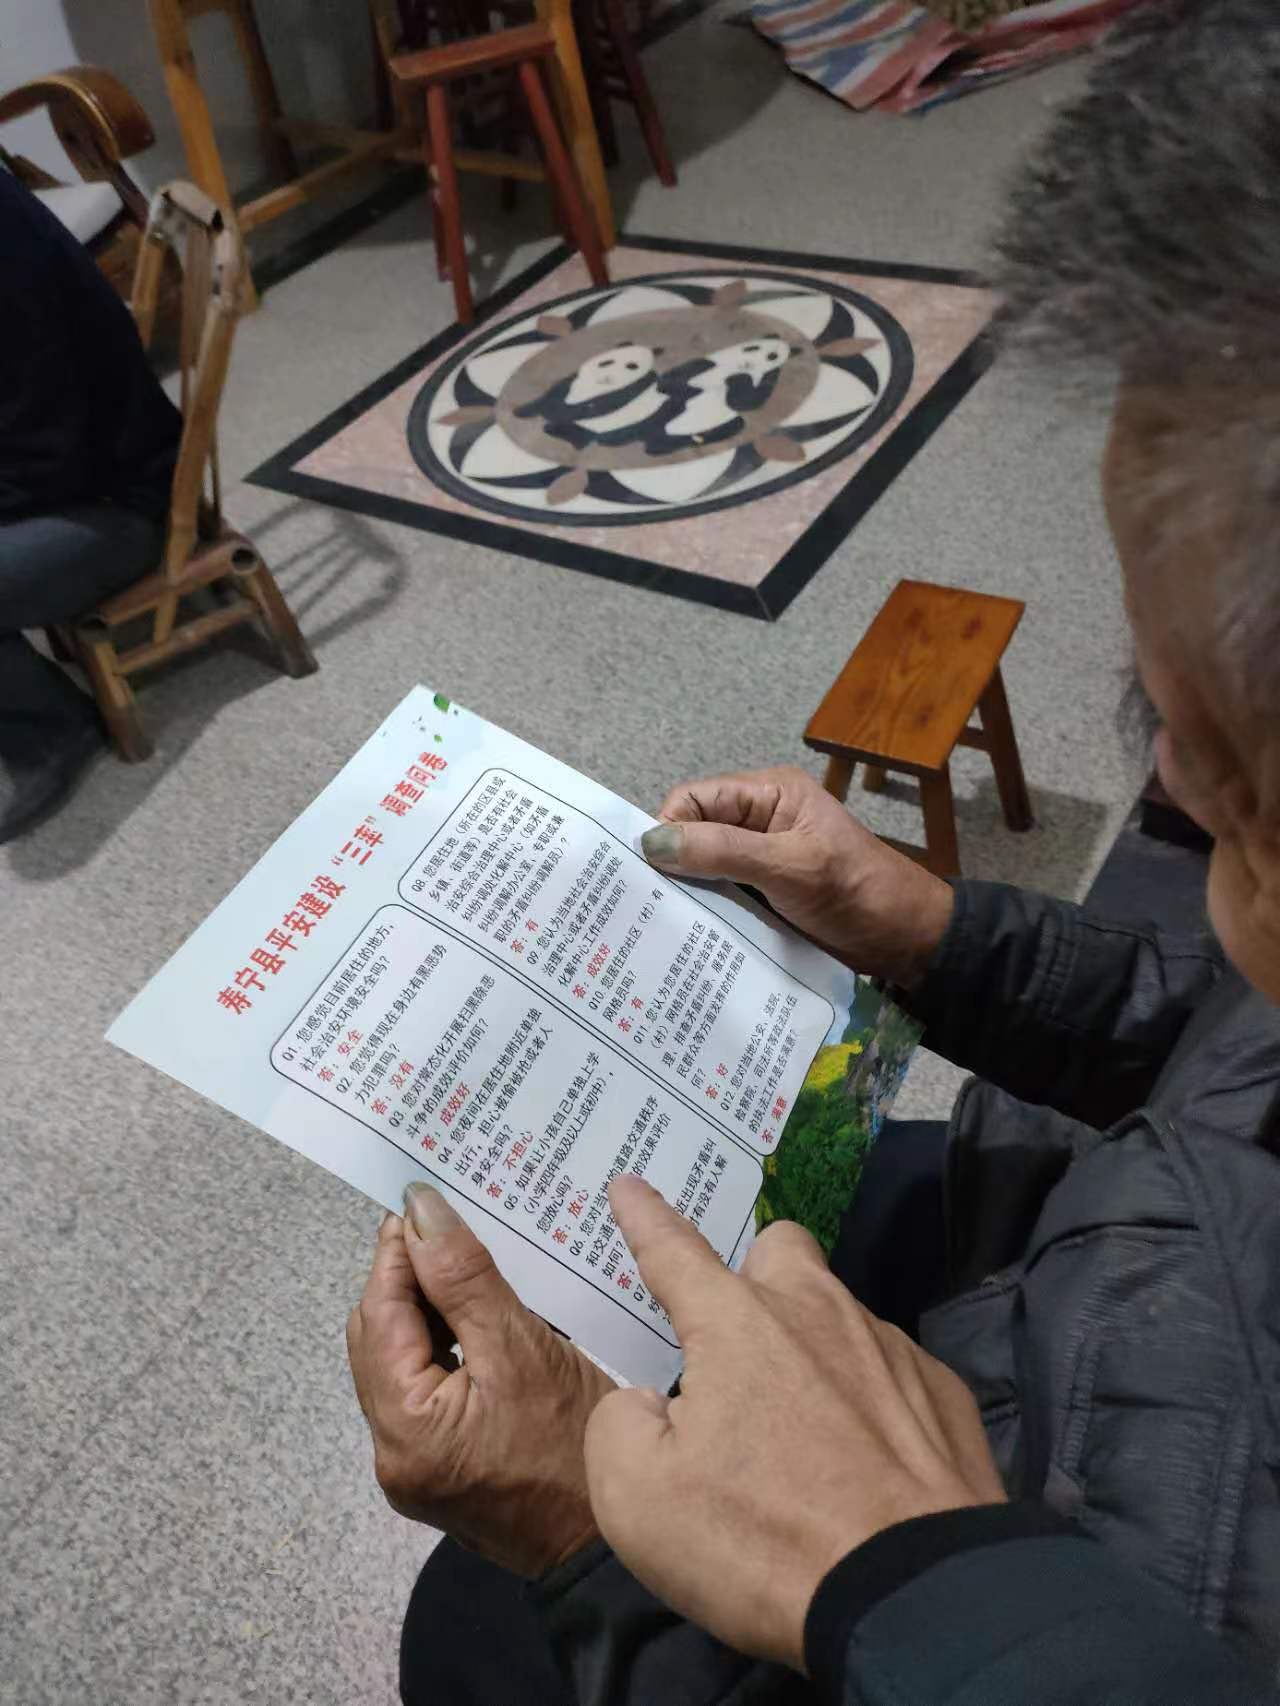 寿宁县平安建设“三率”调查问卷
Q1. 您感觉目前居住的地方，
社会治安环境安全吗？
答：安全
Q2. 您觉得现在身边有黑恶势
力犯罪吗？
答：没有
Q3. 您对常态化开展扫黑除恶
斗争的成效评价如何？
答：成效好
Q4. 您夜间在居住地附近单独
出行，担心被偷被抢或者人
身安全吗？
答：不担心
Q5. 如果让小孩自己单独上学
（小学四年级及以上或初中），
您放心吗？
答：放心
Q6. 您对当地的道路交通秩序
和交通安 的效果评价
如何？
答：
Q7 近出现矛盾纠
纷 时有没有人解
Q8. 您居住地（所在的区县或
乡镇、街道等）是否有社会
治安综合治理中心或者矛盾
纠纷调处化解中心（如矛盾
纠纷调解办公室、专职或兼
职的矛盾纠纷调解员）？
答：有
Q9 您认为当地社会治安综合
治理中心或者矛盾纠纷调处
化解中心工作成效如何？
答：成效好
Q10. 您居住的社区（村）有
网格员吗？
答：有
Q11. 您认为您居住的社区
（村）网格员在社会治安管
理、排查矛盾纠纷、服务居
民群众等方面发挥的作用如
何？
答：好
Q12. 您对当地公安、法院、
检察院、司法所等政法队伍
的执法工作是否满意？
答：满意